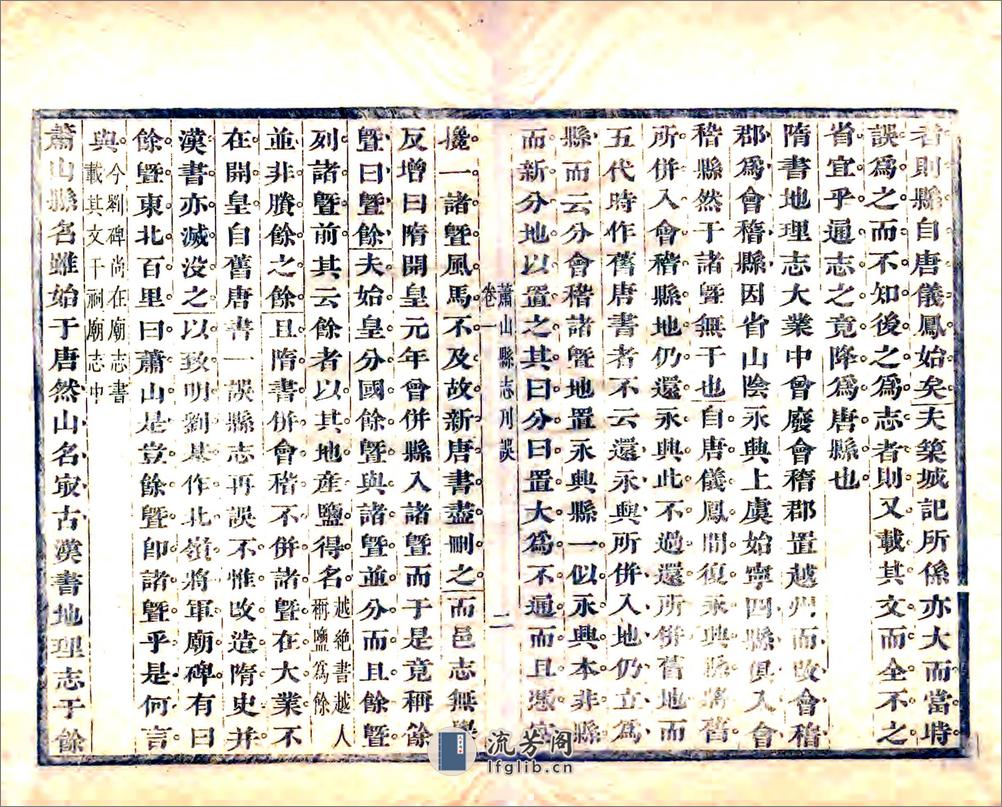 者則縣自唐儀鳳始矣夫築城記所係亦大而當時
誤為之而不知後之為志者則又載其文而全不之
省宜乎通志之竟降為唐縣也
隋書地理志大業中會廢會稽郡置越州而改會稽
郡為會稽縣因省山陰永興上虞始寧四縣俱入會
稽縣然于諸暨無干也自唐儀鳳間復永興縣將舊
所併入會稽縣地仍還永興此不過還所併舊地而
五代時作舊唐書者不云還永興所併入地仍立為
縣而云分會稽諸暨地置永興縣一似永興本非縣
而新分地以置之其曰分曰置大為不通而且憑空
蕭山縣志刊誤
卷一
二
攙一諸暨風馬不及故新唐書盡刪之而邑志無學
反增曰隋開皇元年會併縣入諸暨而于是竟稱餘
暨曰暨餘夫始皇分國餘暨與諸暨並分而且餘暨
列諸暨前其云餘者以其地產鹽得名越絕書越人
稱鹽為餘
並非賸餘之餘且隋書併會稽不併諸暨在大業不
在開皇自舊唐書一誤縣志再誤不惟改造隋史并
漢書亦滅沒之以致明劉基作北嶺將軍廟碑有曰
餘暨東北百里曰蕭山是豈餘暨即諸暨乎是何言
與今劉碑尚在廟志書
載其文于祠廟志中
蕭山縣名雖始于唐然山名㝡古漢書地理志于餘
流芳阁
lfglib.cn